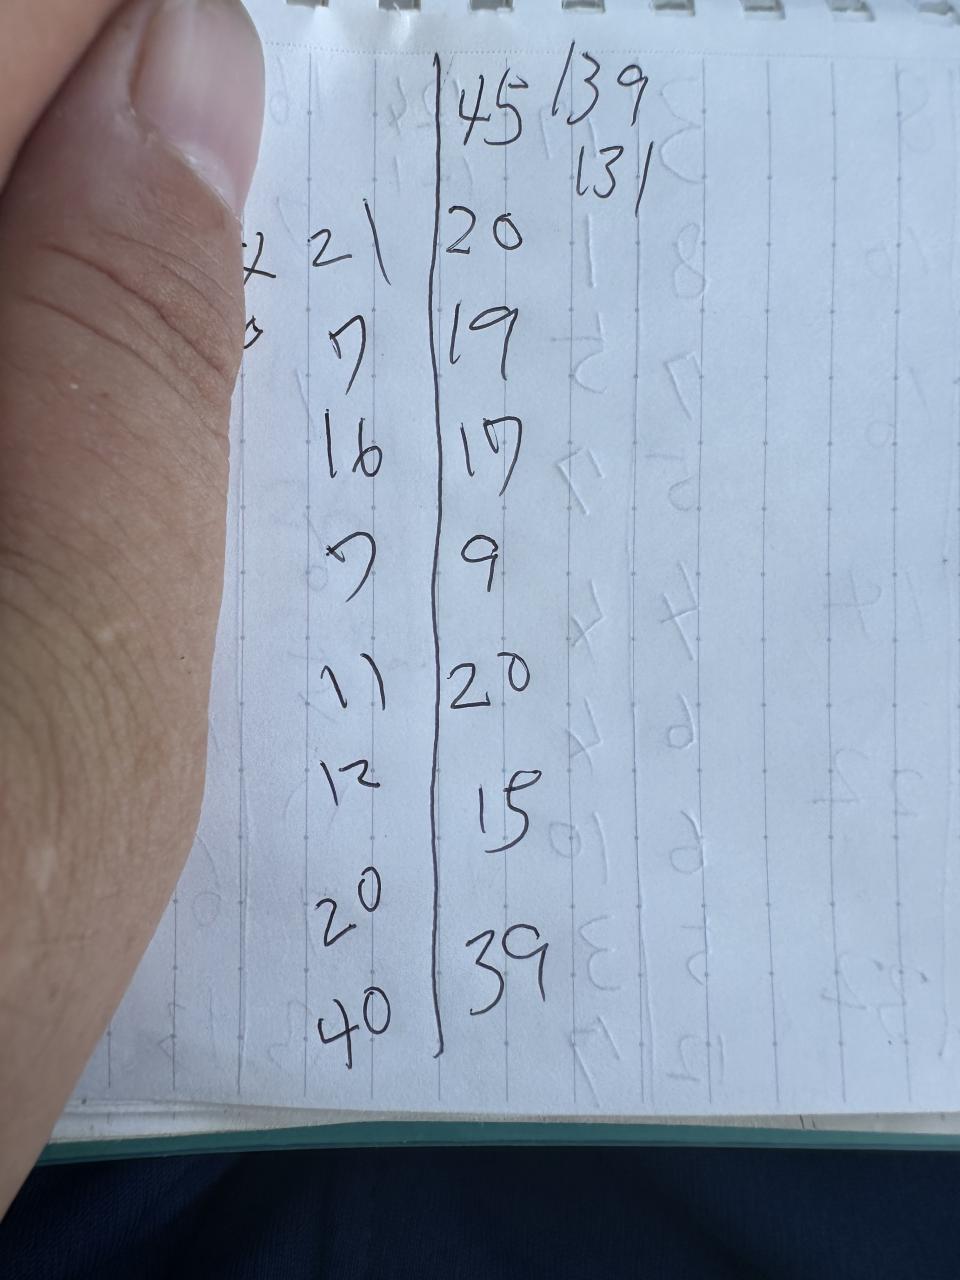 45 139
131
21 20
7 19
16 17
7 9
11 20
12 15
20
39
40